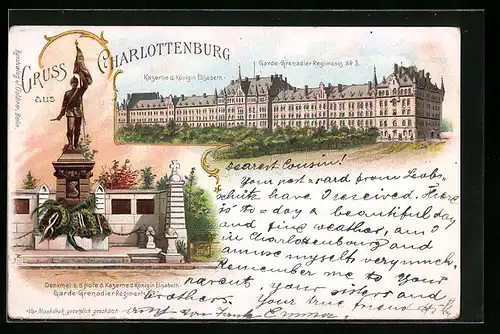 GRUSS aus CHARLOTTENBURG
Kaserne d. Königin Elisabeth
Garde-Grenadier Regiments Nº 3.
Dearest Cousin!
Your post-card from Leobschütz
have I received. There
is to-day a beautiful day
and fine weather, am I
in Charlottenbourg and
amuse myself very much.
Remember me to your
parent, your sisters and
brothers. Your true friend
Emma.
Denkmal a. d. Hofe d. Kaserne d. Königin Elisabeth
Garde-Grenadier Regiments Nº 3.
Vor Nachdruck gesetzlich geschützt.